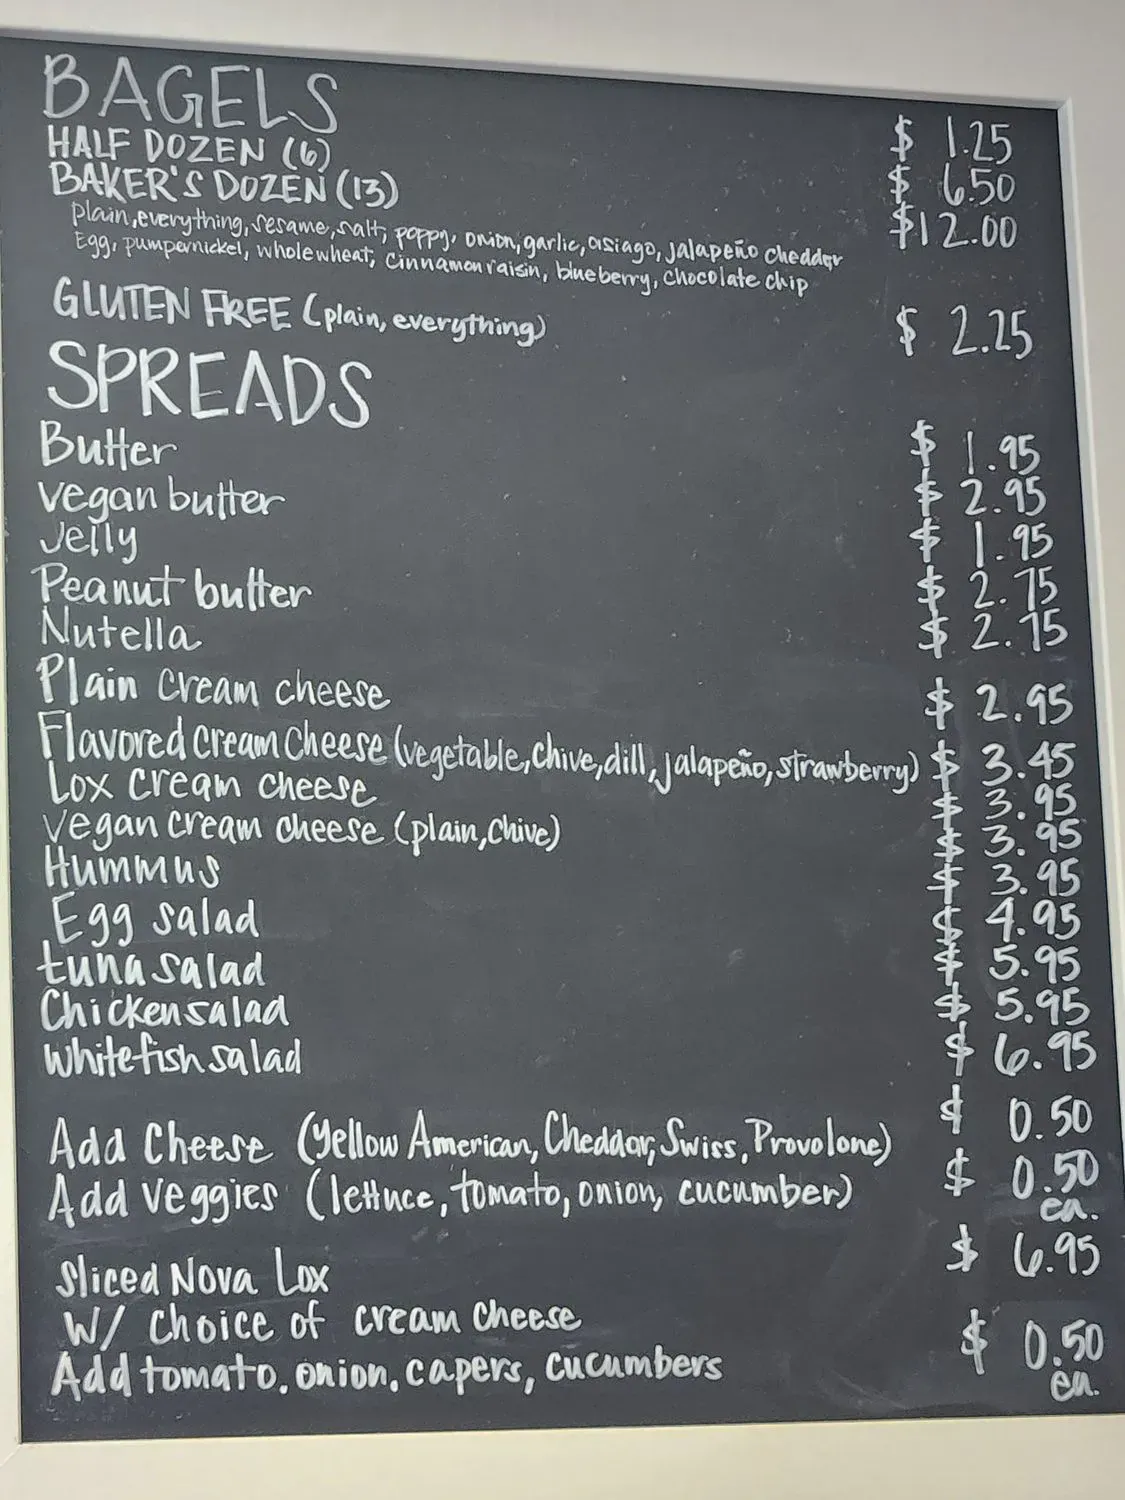 BAGELS $ 1.25
HALF DOZEN (6) $ 6.50
BAKER'S DOZEN (13) $12.00
plain, everything, sesame, salt, poppy, onion, garlic, asiago, jalapeño cheddar
Egg, pumpernickel, whole wheat, cinnamon raisin, blueberry, chocolate chip
GLUTEN FREE (plain, everything) $ 2.25
SPREADS
Butter $ 1.95
vegan butter $ 2.95
Jelly $ 1.95
Peanut butter $ 2.75
Nutella $ 2.75
Plain cream cheese $ 2.95
Flavored cream cheese (vegetable, chive, dill, jalapeño, strawberry) $ 3.45
Lox cream cheese $ 3.95
vegan cream cheese (plain, chive) $ 3.95
Hummus $ 3.95
Egg salad $ 4.95
tuna salad $ 5.95
Chicken salad $ 5.95
whitefish salad $ 6.95
Add Cheese (yellow American, Cheddar, Swiss, Provolone) $ 0.50
Add veggies (lettuce, tomato, onion, cucumber) $ 0.50
ea.
Sliced Nova Lox $ 6.95
W/ choice of cream cheese
Add tomato, onion, capers, cucumbers $ 0.50
ea.